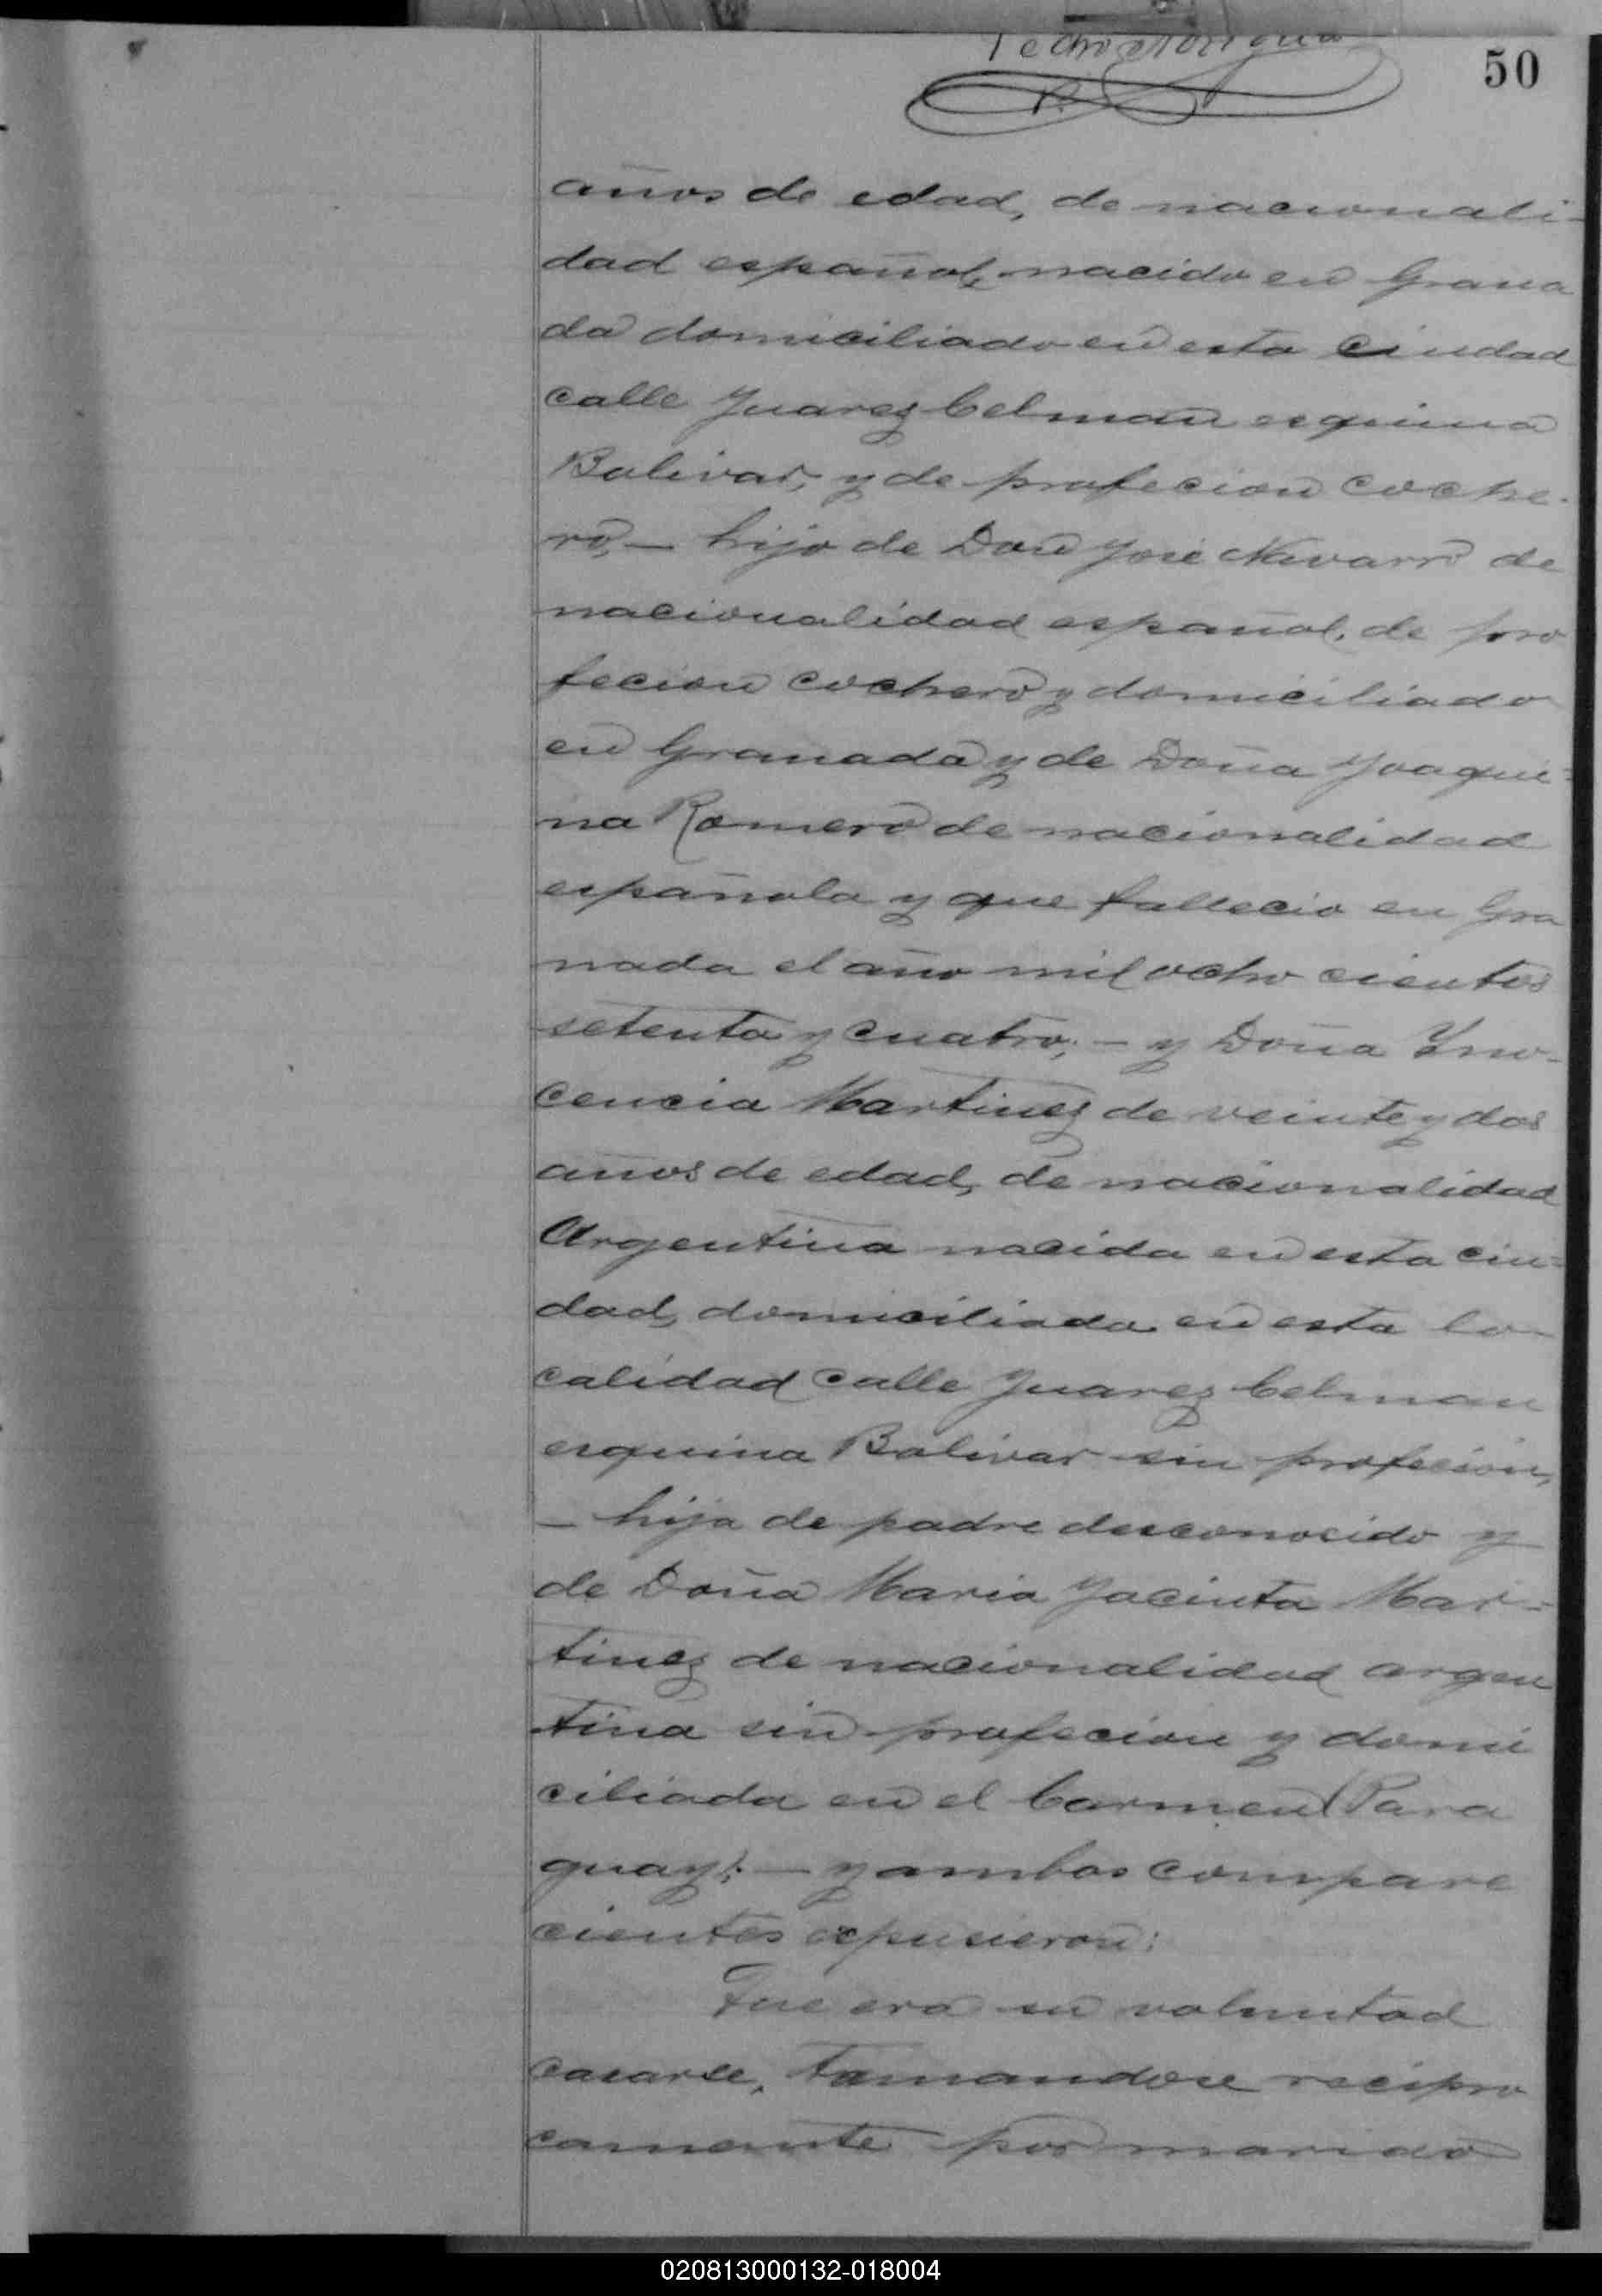 50
años de edad, de nacionali-
dad español, nacido en Grana
da domiciliado en esta ciudad
calle Juarez Celman esquina
Bolivar, y de profecion coche-
ro, — hijo de Don José Navarro de
nacionalidad español, de pro
fecion cochero y domiciliado
en Granada y de Doña Joaqui=
na Romero de nacionalidad
española y que fallecio en Gra
nada el año mil ochocientos
setenta y cuatro; — y Doña Yno-
cencia Martinez de veinte y dos
años de edad, de nacionalidad
Argentina nacida en esta ciu=
dad, domiciliada en esta lo-
calidad calle Juarez Celman
esquina Bolivar sin profecion,
— hija de padre desconocido y
de Doña Maria Jacinta Mar=
tinez de nacionalidad argen
tina sin profecion y domi
ciliada en el Carmen (Para
guay); — y ambos compare
cientes expusieron:
Que era su voluntad
casarse, tomandose recipro
camente por marido
020813000132-018004